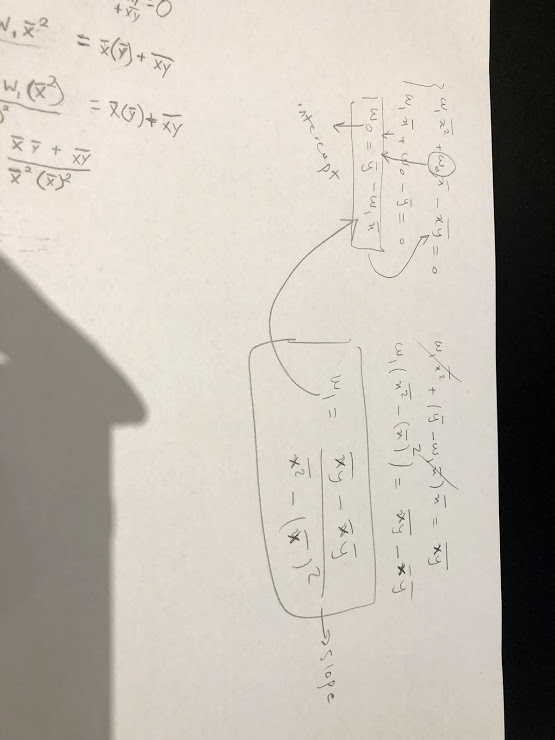 +x̅y̅ = 0
W₁ x̄² = x̄(ȳ) + x̅y̅
W₁(x̄²) = x̄(ȳ) + x̅y̅
x̄ ȳ + x̅y̅
x̄² (x̄)²
{ w₁x̅² + w₀x̄ - x̅y̅ = 0
w₁x̄ + w₀ - ȳ = 0
w₀ = ȳ - w₁x̄
intercept
w₁x̅² + (ȳ - w₁x̄)x̄ = x̅y̅
w₁(x̅² - (x̄)²) = x̅y̅ - x̄ȳ
w₁ = 
x̅y̅ - x̄ȳ
x̅² - (x̄)²
→ slope